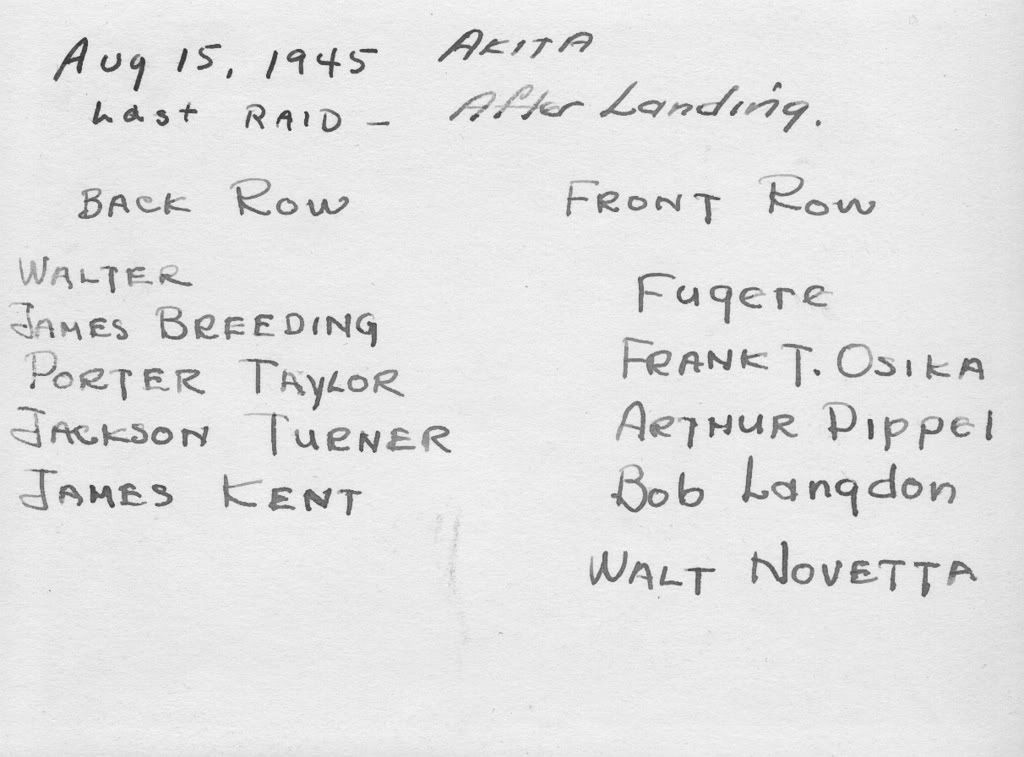 Aug 15, 1945 AKITA
Last RAID - After Landing.
BACK ROW
WALTER
JAMES BREEDING
PORTER TAYLOR
JACKSON TURNER
JAMES KENT
FRONT ROW
Fugere
FRANK T. OSIKA
ARTHUR DIPPEl
Bob Langdon
WALT NOVETTA